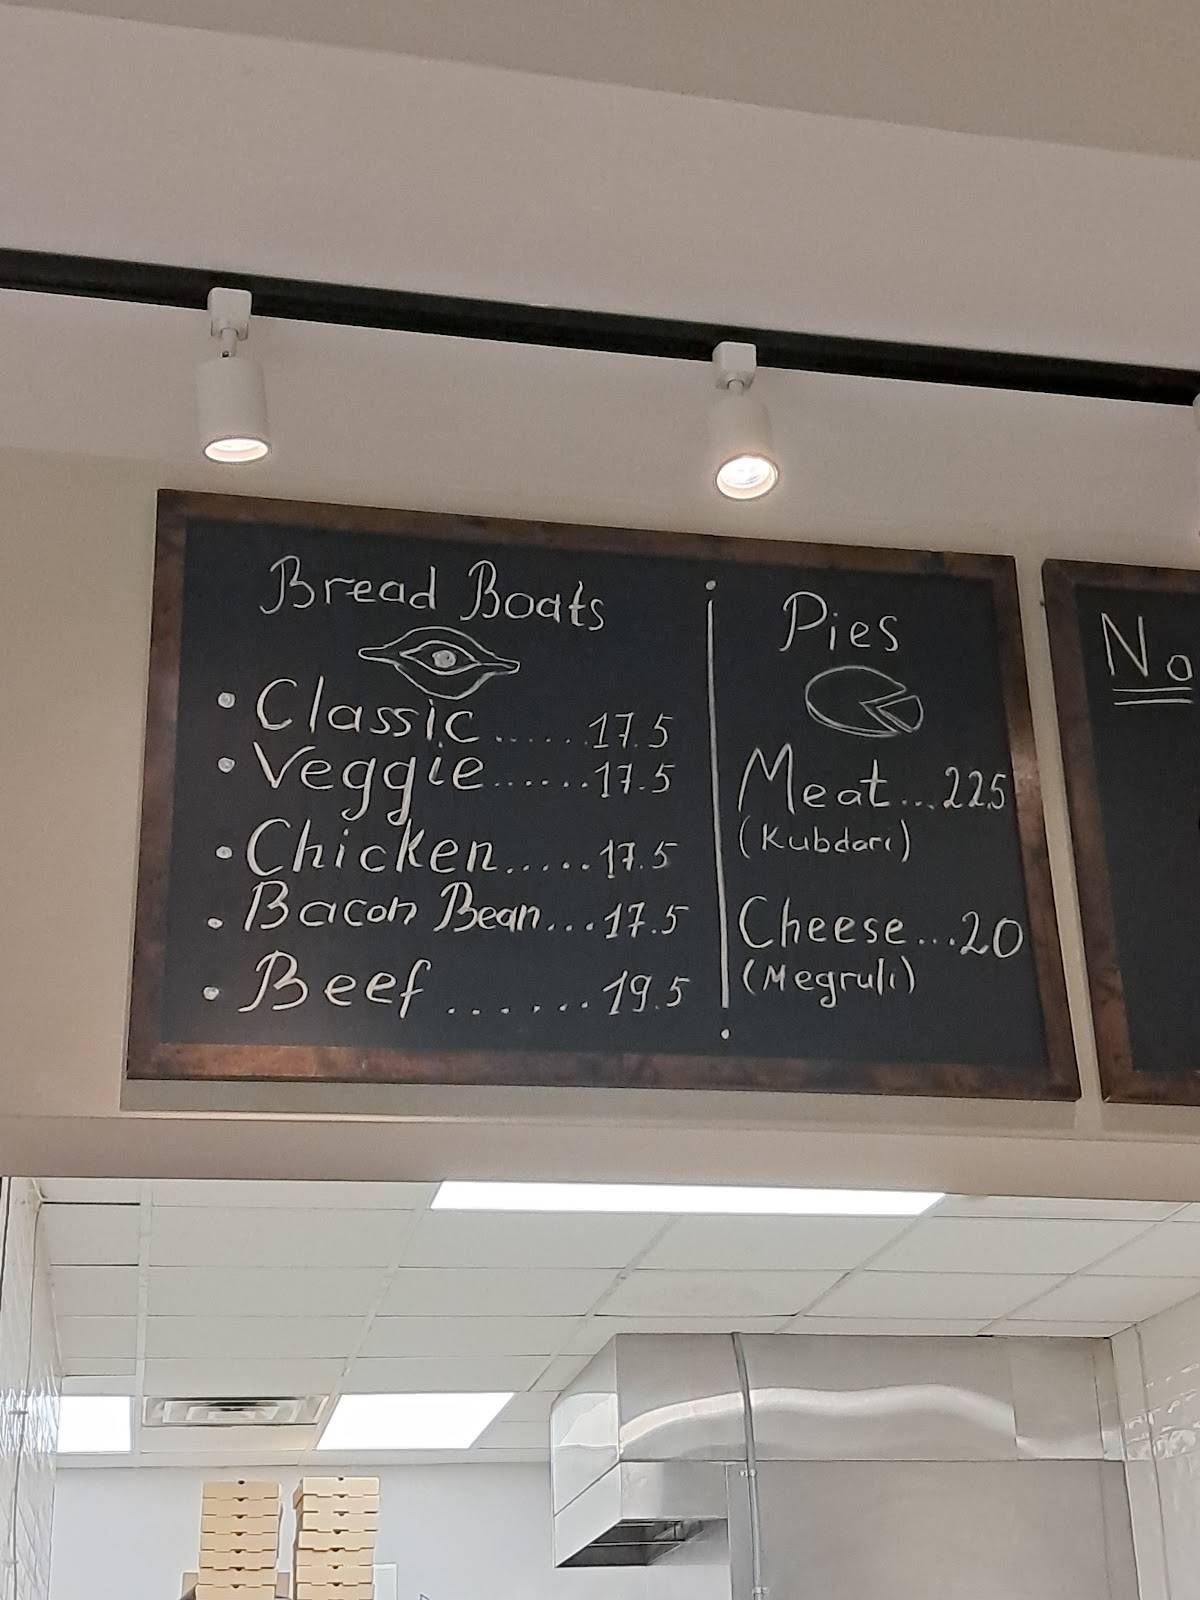 Bread Boats
• Classic......17.5
• Veggie......17.5
• Chicken.....17.5
• Bacon Bean...17.5
• Beef.......19.5
Pies
Meat...22.5
(Kubdari)
Cheese...20
(Megruli)
No